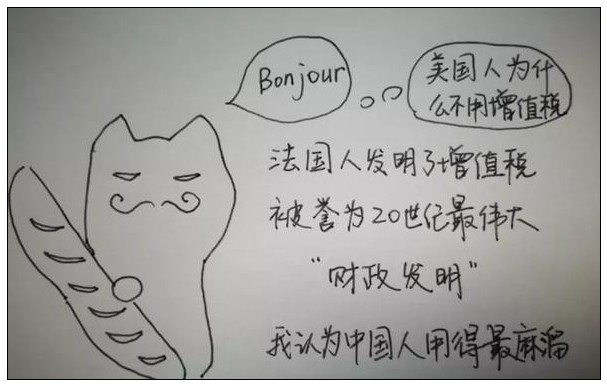 Bonjour
美国人为什
么不用增值税
法国人发明了增值税
被誉为20世纪最伟大
"财政发明"
我认为中国人用得最麻溜